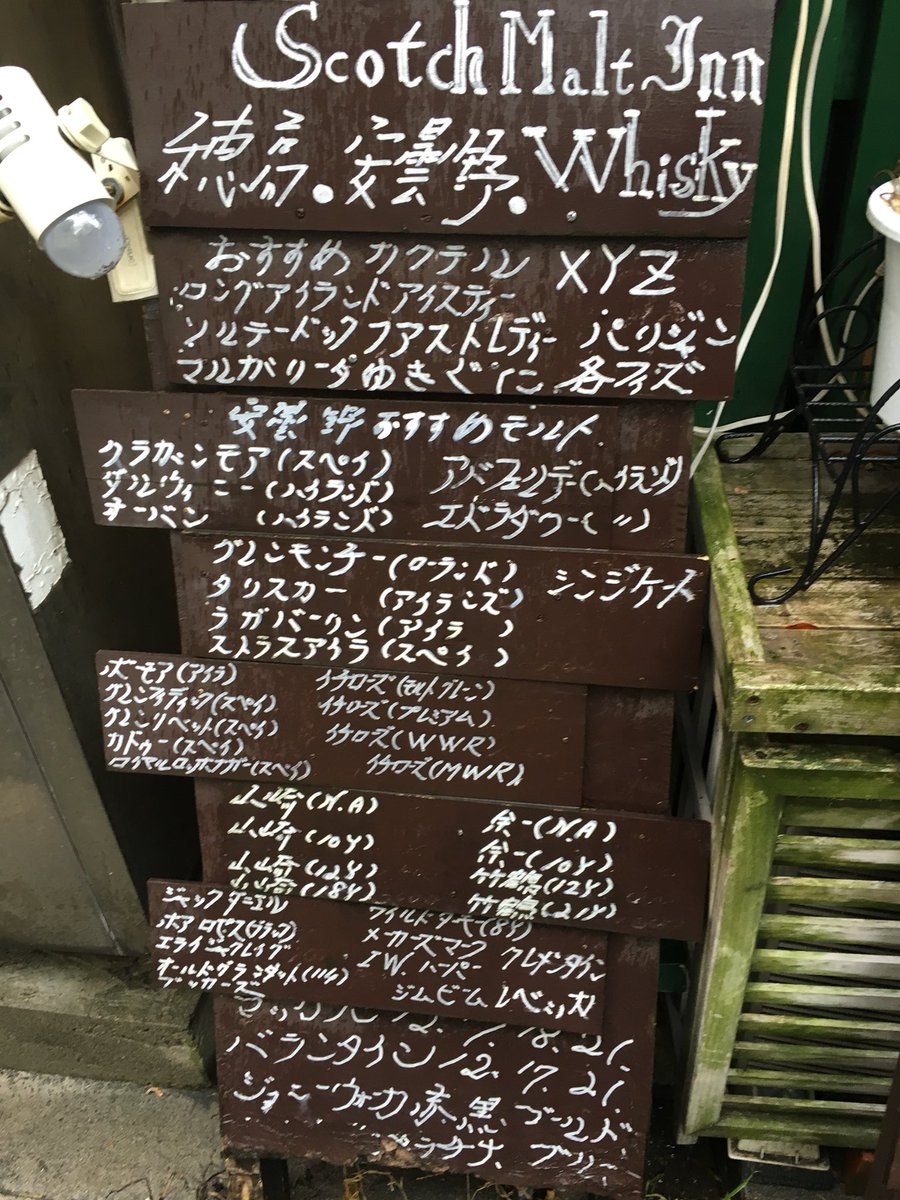 Scotch Malt Inn
穂高.安曇野.Whisky
おすすめ カクテル XYZ
ロングアイランドアイスティー
ソルテードック ファストレディー パリジャン
マルガリータ ゆきぐに 各フィズ
安曇野おすすめモルト
クラガンモア(スペイ) アバフェルデー(ハイランド)
ダルウィニー(ハイランド)
オーバン (ハイランズ) エドラダワー(〃)
グレンキンチー(ローランド)
タリスカー (アイランズ) シンジケート
ラガバーリン(アイラ )
ストラスアイラ(スペイ )
ボーモア(アイラ) イチローズ(モルトグレーン)
グレンフィディック(スペイ) イチローズ(プレミアム)
グレンリベット(スペイ) イチローズ(WWR)
カドゥー(スペイ) イチローズ(MWR)
ロイヤルロッホナガー(スペイ)
山崎(N.A) 余一(N.A)
山崎(10y) 余一(10y)
山崎(12y) 竹鶴(12y)
山崎(18y) 竹鶴(21y)
ジャックダニエル
ホアロゼス(ブラック) メカーズマーク クレメンタイン
エライジャクレイグ I.W.ハーパー
オールドグランダット(114) ジムビーム レベッカ
ブッカーズ
12. 18. 21.
バランタイン 12. 17. 21.
ジョニーウォカ 赤.黒.ゴールド